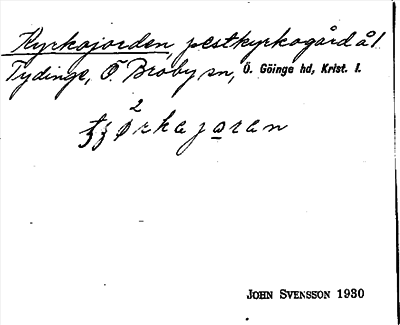 Kyrkojorden, pestkyrkogård å 1
Tydinge, Ö Broby sn, Ö. Göinge hd, Krist. l.
2
kjørkajoran
JOHN SVENSSON 1930